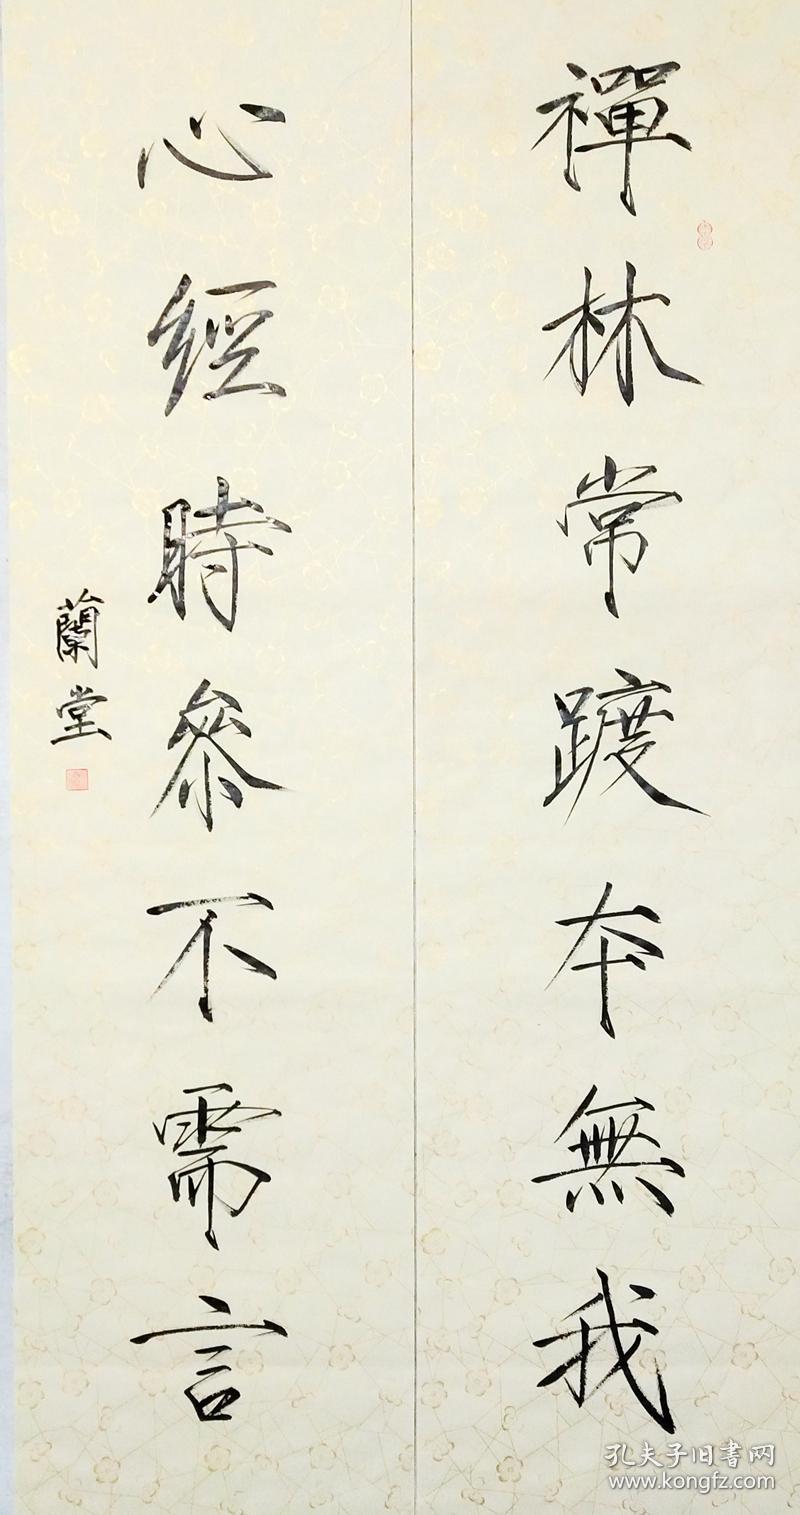 禪林常踱本無我
心經時參不需言
蘭堂
孔夫子旧书网
www.kongfz.com